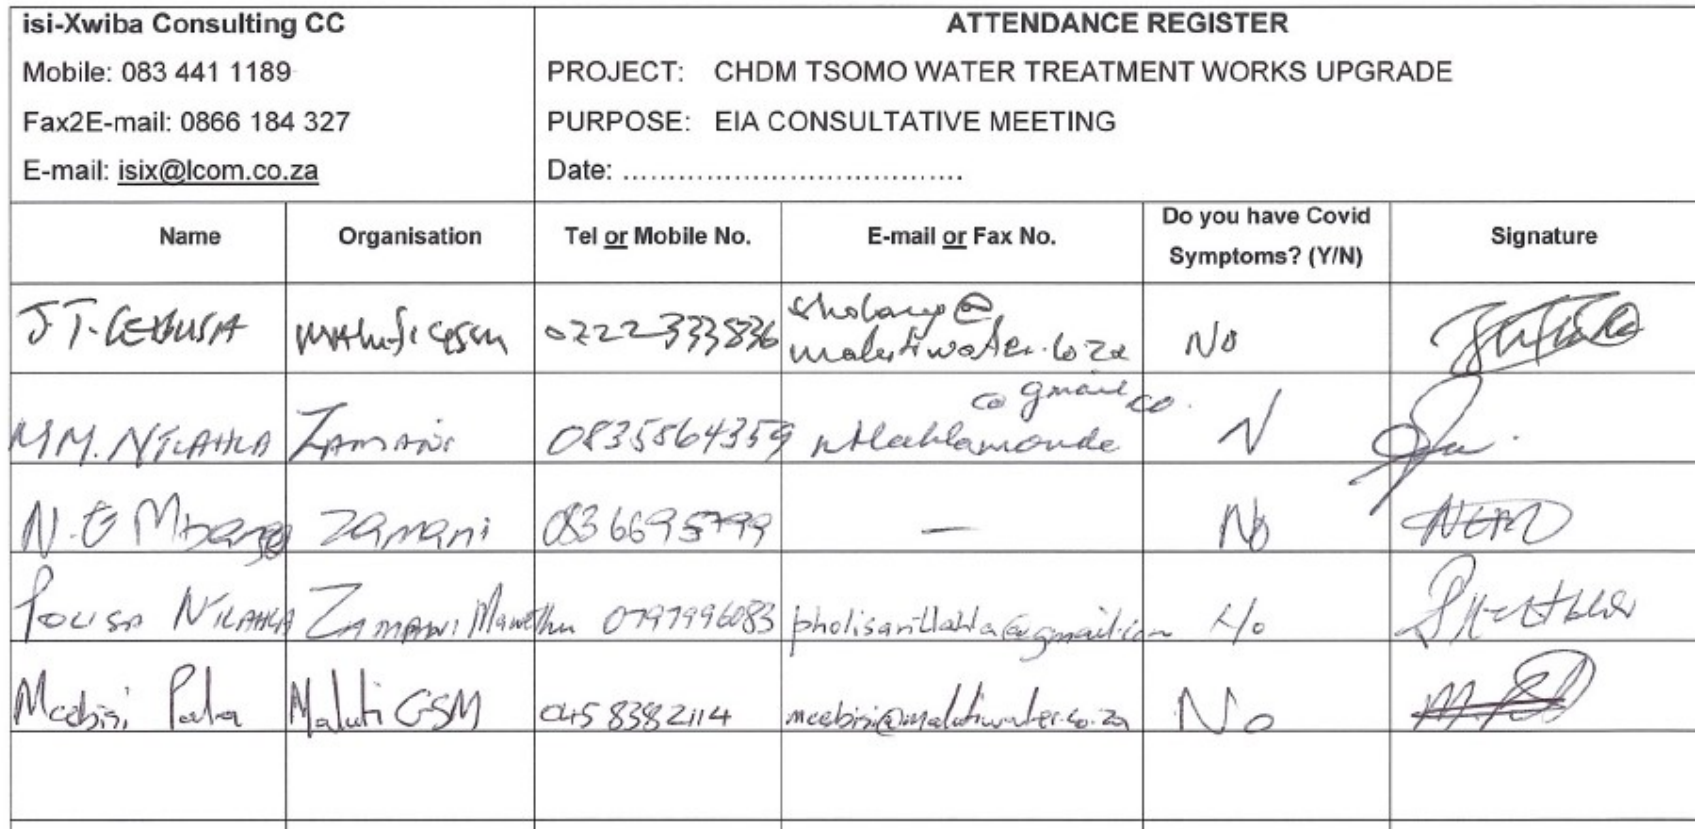 isi-Xwiba Consulting CC
Mobile: 083 441 1189
Fax2E-mail: 0866 184 327
E-mail: isix@lcom.co.za
ATTENDANCE REGISTER
PROJECT: CHDM TSOMO WATER TREATMENT WORKS UPGRADE
PURPOSE: EIA CONSULTATIVE MEETING
Date: ......................................
Name Organisation Tel or Mobile No. E-mail or Fax No. Do you have Covid Symptoms? (Y/N) Signature
J.T. 0222333836 No
malutiwater.co.za
@ gmail co.
M.M. NTLAHLA ZAMANI 0835564359 ntlahlamonde N
N.E Zamani 0836695799 — No
NTLAHLA ZAMANI Mawethu 0797996083 pholisantlahla@gmail.com No
Mcebisi Maluti GSM 045 8382114 mcebisi@malutiwater.co.za No